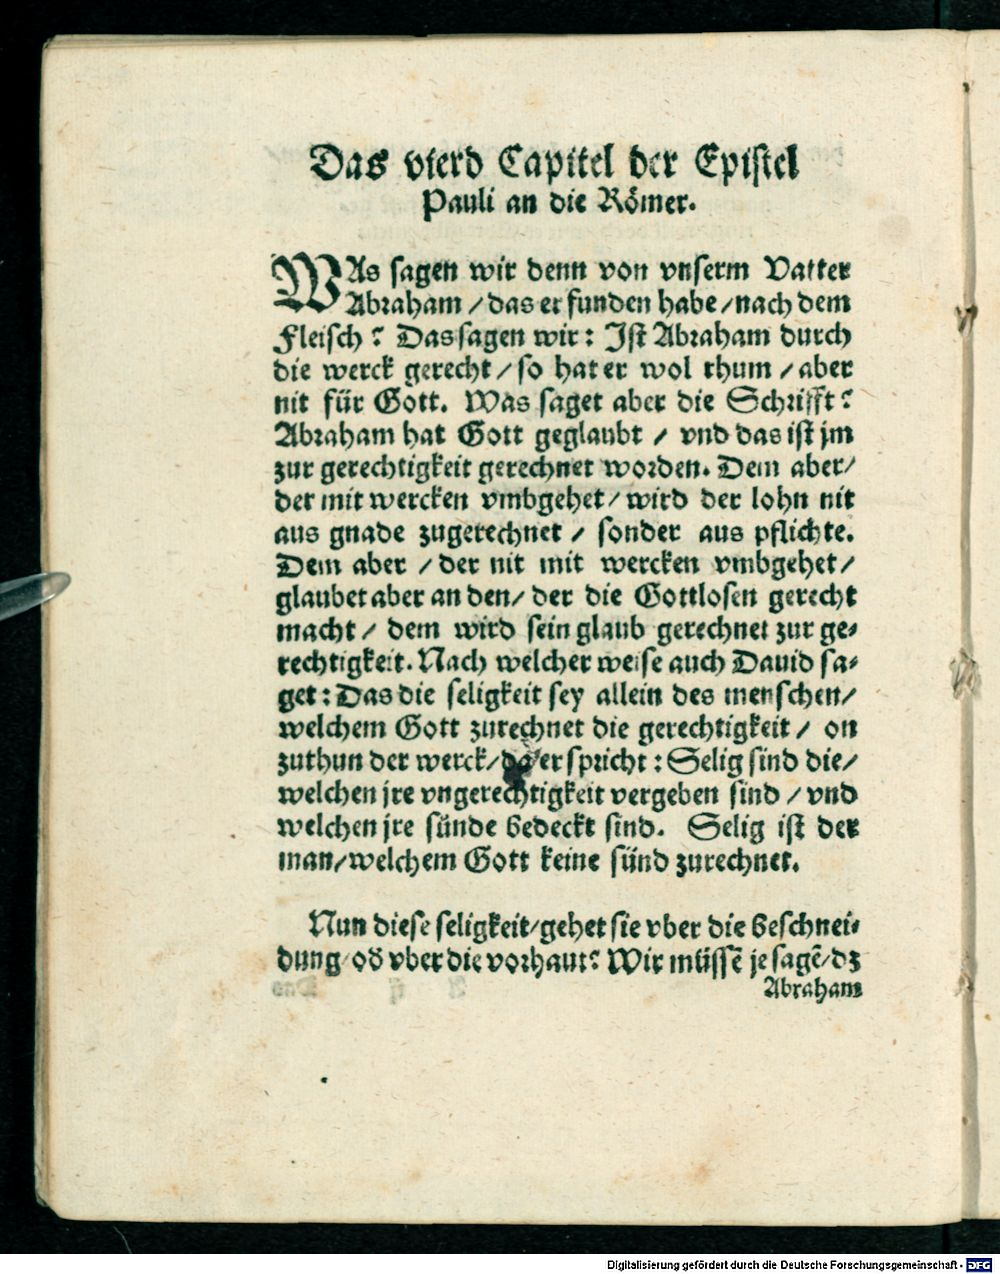 Das vierd Capitel der Epistel
Pauli an die Römer.
WAs sagen wir denn von vnserm Vatter
Abraham / das er funden habe / nach dem
Fleisch? Das sagen wir: Ist Abraham durch
die werck gerecht / so hat er wol rhum / aber
nit für Gott. Was saget aber die Schrifft?
Abraham hat Gott geglaubt / vnd das ist jm
zur gerechtigkeit gerechnet worden. Dem aber /
der mit wercken vmbgehet / wird der lohn nit
aus gnade zugerechnet / sonder aus pflichte.
Dem aber / der nit mit wercken vmbgehet /
glaubet aber an den / der die Gottlosen gerecht
macht / dem wird sein glaub gerechnet zur ge-
rechtigkeit. Nach welcher weise auch Dauid sa-
get: Das die seligkeit sey allein des menschen /
welchem Gott zurechnet die gerechtigkeit / on
zuthun der werck / da er spricht: Selig sind die /
welchen jre vngerechtigkeit vergeben sind / vnd
welchen jre sünde bedeckt sind. Selig ist der
man / welchem Gott keine sünd zurechnet.
Nun diese seligkeit / gehet sie vber die beschnei-
dung / od̄ vber die vorhaut? Wir müssē je sagē / dz
Abraham
Digitalisierung gefördert durch die Deutsche Forschungsgemeinschaft - DFG